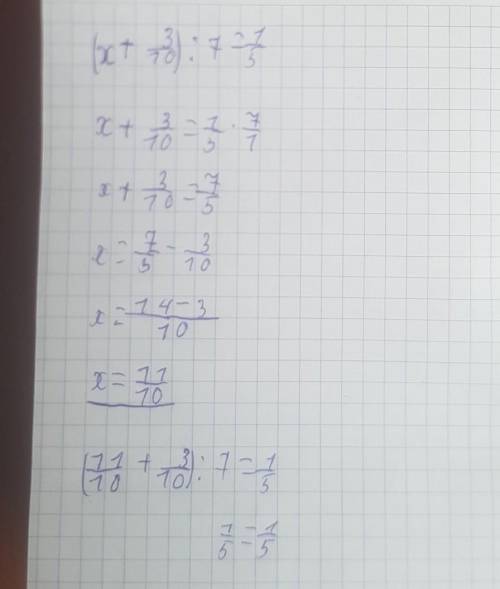 (x + 3/10) : 7 = 1/5
x + 3/10 = 1/5 · 7/1
x + 3/10 = 7/5
x = 7/5 - 3/10
x = 14-3/10
x = 11/10
(11/10 + 3/10) : 7 = 1/5
1/5 = 1/5